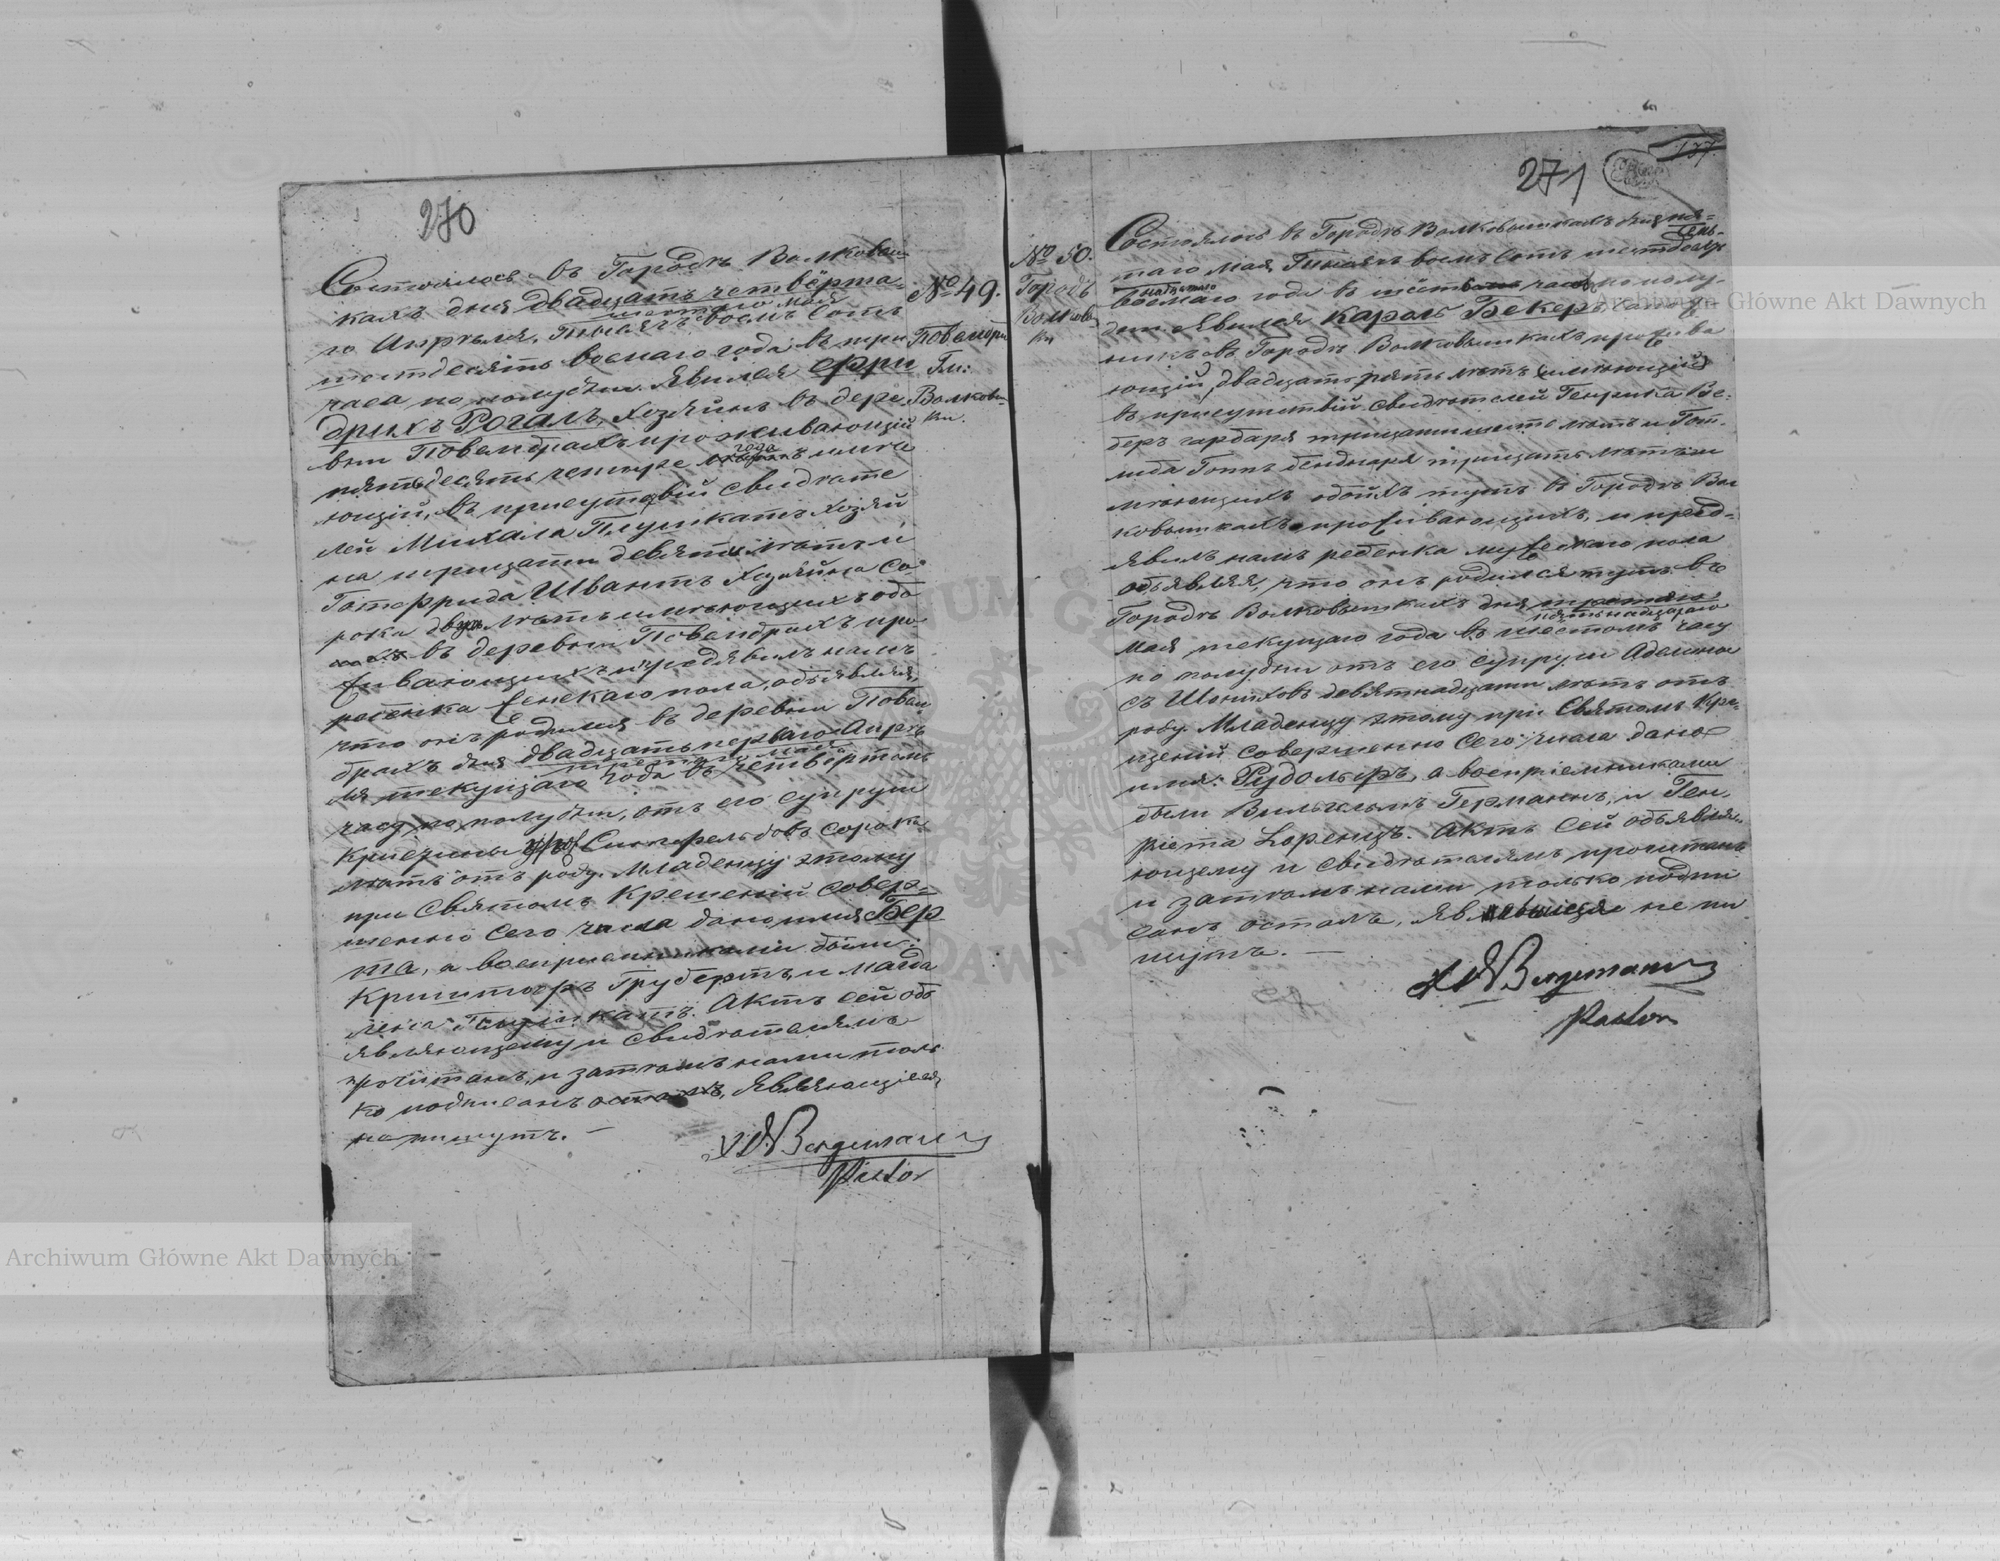 270
Состоялось въ Городѣ Волковыш
кахъ дня двадцать четвёрта-
шестого мая
го Апрѣля, тысяча восемь сотъ
шестдесятъ восмаго года въ три
часа по полудни. Явился Фри
дрихъ Рогалъ, Хозяинъ въ дере
вни Повембрахъ проживающій
года
пятьдесятъ четыре имѣ
ющій, въ присутствій свидѣте
лей Михала Плушкатъ хозяй
на тридцати девяти лѣтъ и
Готфрида Швантъ Хозяйна со-
рока двухъ лѣтъ имѣющихъ обо
въ деревни Повембрахъ про
живающихъ и предявилъ намъ
ребенка женскаго пола, объявляя,
что онъ родился въ деревни Повем
брахъ дня двадцать перваго Апрѣ
третьяго мая
ля текущаго года въ четвёртомъ
часу по полудни, отъ его супруги
Кристины Синнфельдовъ сорокъ
лѣтъ отъ роду. Младенцу этому
при Святомъ Крещеній совер-
шенно сего числа дано имя Бер
та, а воспріемниками были:
Криштофъ Грубертъ и Магда
лена Плушкатъ. Актъ сей объ
являющему и свидѣтелямъ
прочитанъ, и затѣмъ нами толь
ко подписанъ осталъ, Являющіеся
не пишутъ. —
Bergemann
Pastor
№ 49.
Повембри
Гм:
Волковы
ки.
137
271
№ 50.
Городъ
Волковы
ки
Состоялось въ Городѣ Волковышкахъ дня пя-
таго мая Тысяча восемь сотъ шестдесятъ
восмаго года въ часовъ по полу-
дни явился Кароль Бекеръ, сапож
никъ въ Городѣ Волковышкахъ прожива
ющій, двадцать пять лѣтъ имѣющій
въ присутствій свидѣтелей Генрика Ве-
беръ гарбаря тридцати шести лѣтъ и Гот-
либа Гоппъ беднаря тридцать лѣтъ и
мѣющихъ обоихъ тутъ въ Городѣ Вол
ковышкахъ проживающихъ, и предъ-
явилъ намъ ребенка мужескаго пола
объявляя, что онъ родился тутъ въ
Городѣ Волковышкахъ дня третяго
пятьнадцатаго
мая текущаго года въ шестомъ часу
по полудни отъ его супруги Аделины
съ Шониховъ девятнадцати лѣтъ отъ
роду. Младенцу этому при Святомъ Кре-
щеній совершенно сего числа дано
имя: Рудольфъ, а воспріемниками
были Вильгельмъ Германнъ, и Ген-
ріета Лоренцъ. Актъ сей объявля-
ющему и свидѣтелямъ прочитанъ
и затѣмъ нами только подпи
санъ осталъ, не пи
шутъ. —
Bergemann
Pastor
Archiwum Główne Akt Dawnych
Archiwum Główne Akt Dawnych